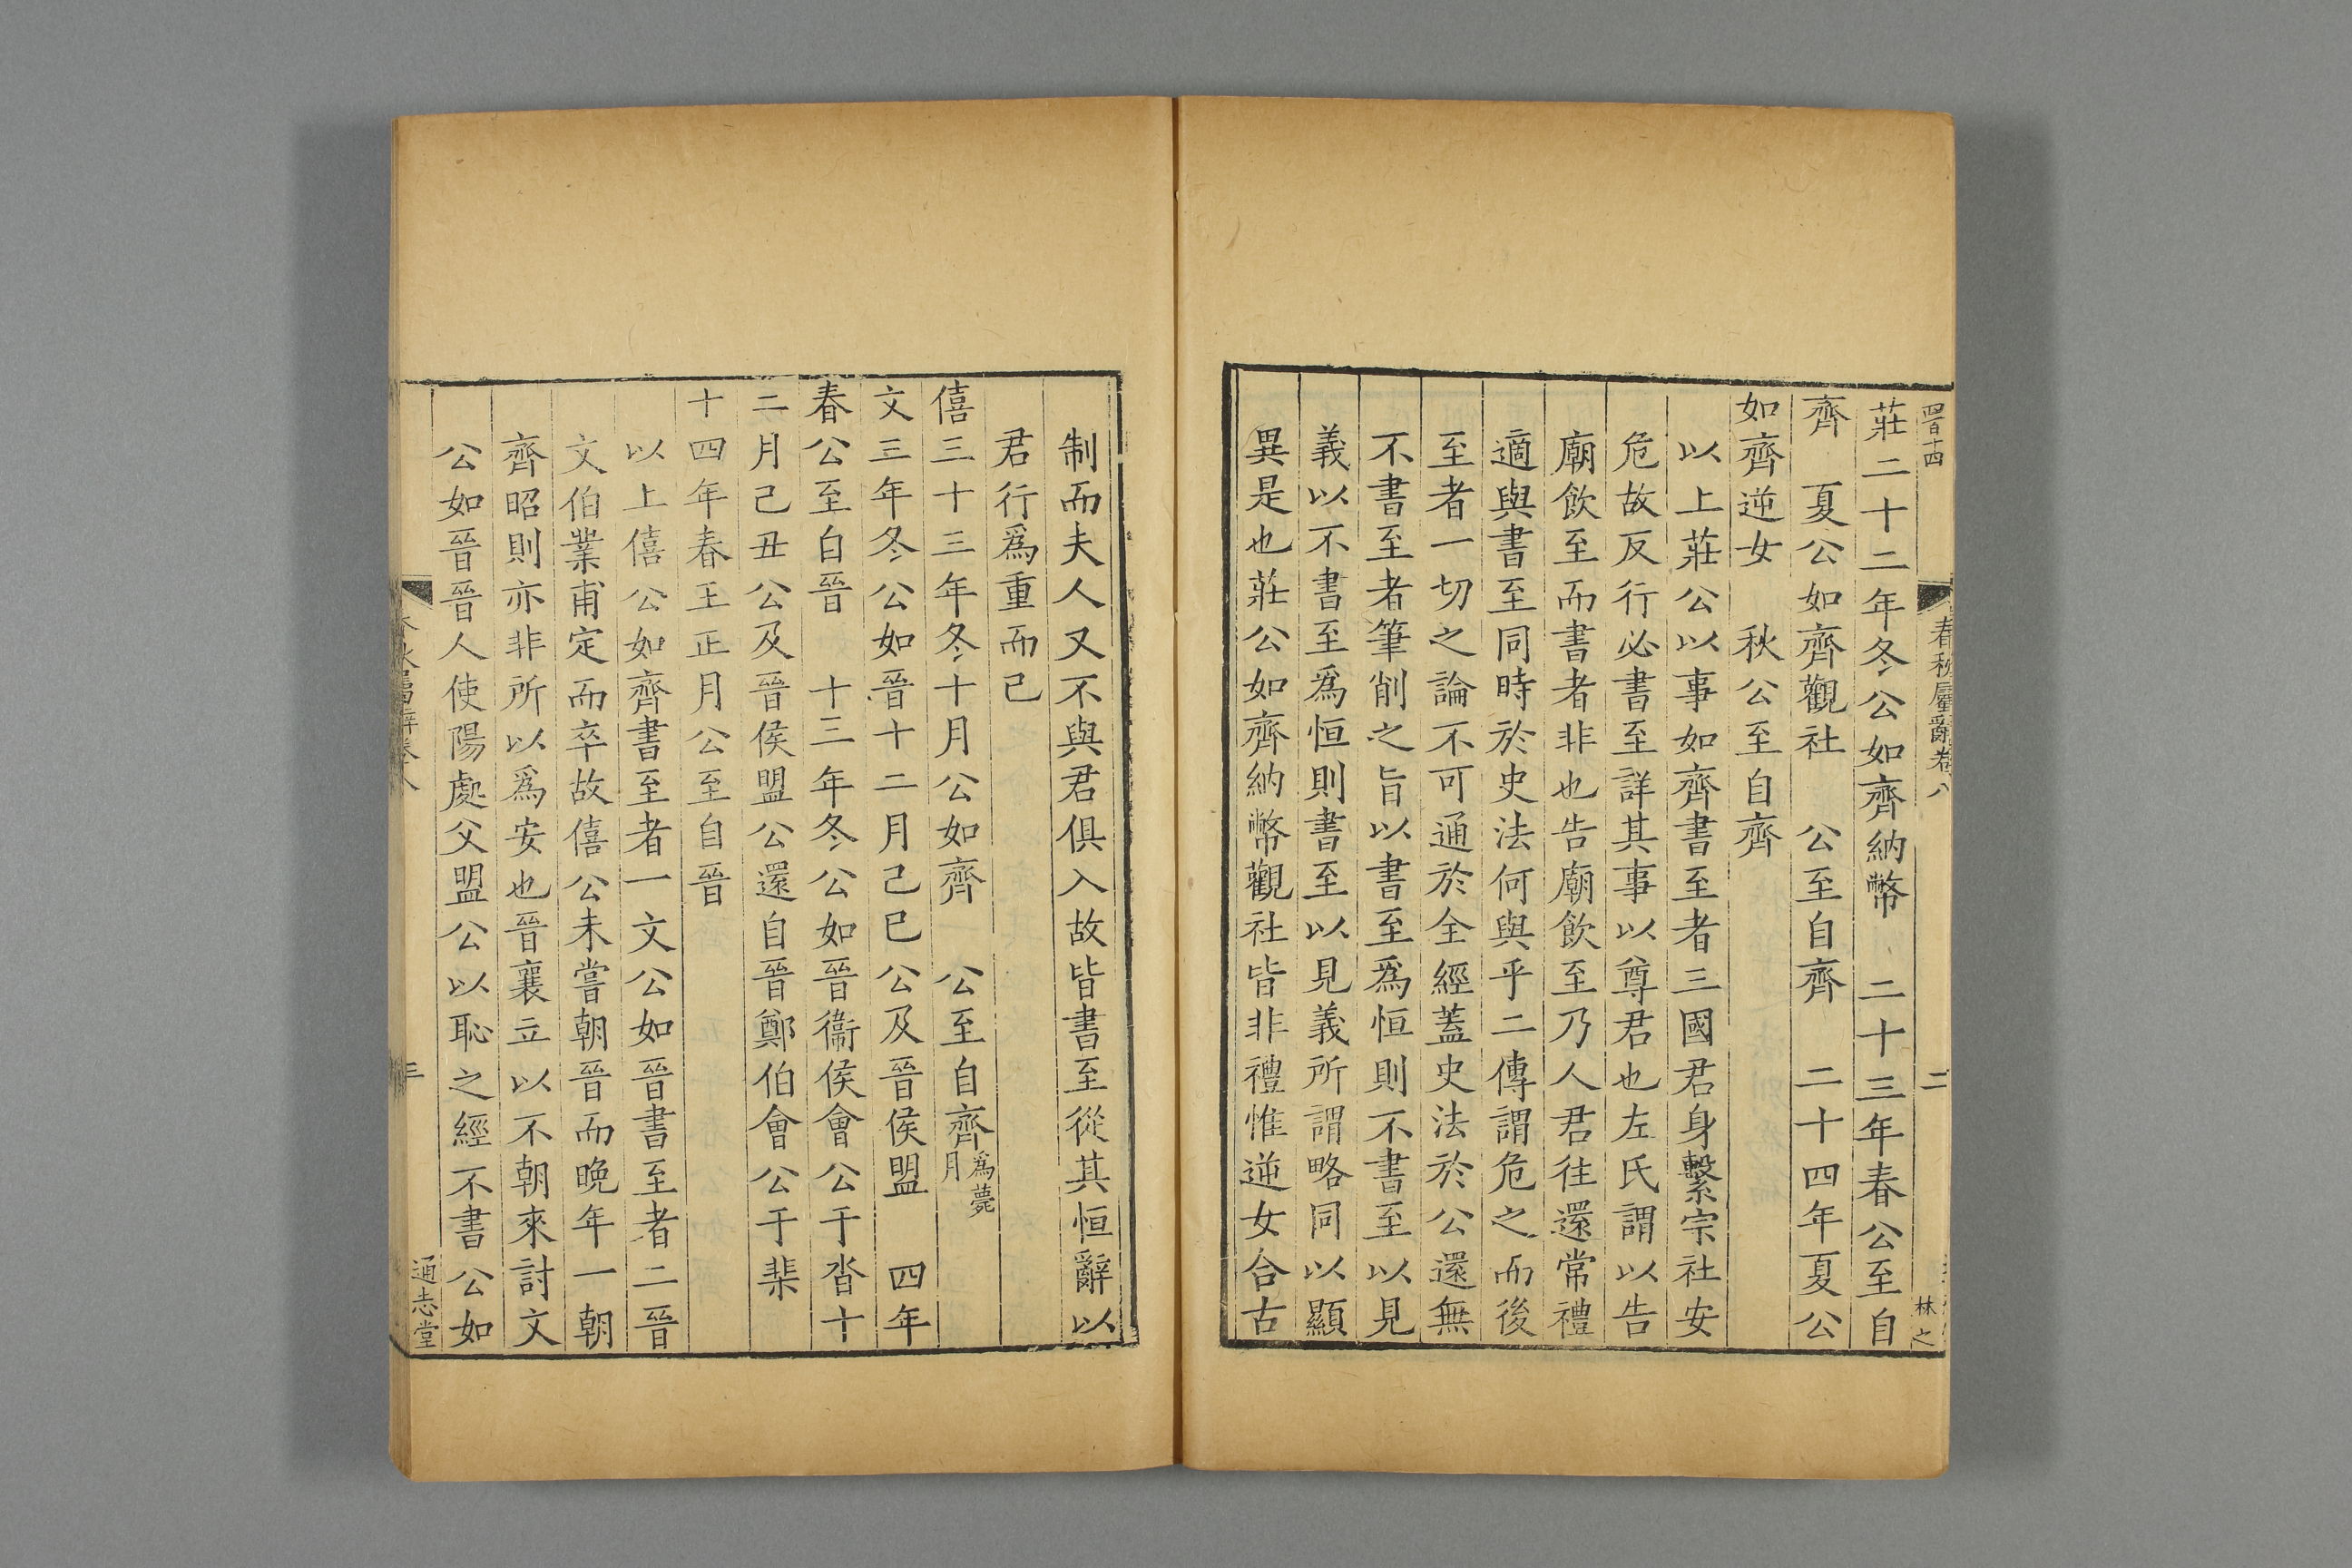 四百十四
春秋屬辭卷八
二
林之
莊二十二年冬公如齊納幣　二十三年春公至自
齊　夏公如齊觀社　公至自齊　二十四年夏公
如齊逆女　秋公至自齊
以上莊公以事如齊書至者三國君身繫宗社安
危故反行必書至詳其事以尊君也左氏謂以告
廟飲至而書者非也告廟飲至乃人君往還常禮
適與書至同時於史法何與乎二傳謂危之而後
至者一切之論不可通於全經蓋史法於公還無
不書至者筆削之旨以書至爲恒則不書至以見
義以不書至爲恒則書至以見義所謂略同以顯
異是也莊公如齊納幣觀社皆非禮惟逆女合古
制而夫人又不與君俱入故皆書至從其恒辭以
君行爲重而已
僖三十三年冬十月公如齊　公至自齊爲薨月
文三年冬公如晉十二月己巳公及晉侯盟　四年
春公至自晉　十三年冬公如晉衞侯會公于沓十
二月己丑公及晉侯盟公還自晉鄭伯會公于棐
十四年春王正月公至自晉
以上僖公如齊書至者一文公如晉書至者二晉
文伯業甫定而卒故僖公未嘗朝晉而晚年一朝
齊昭則亦非所以爲安也晉襄立以不朝來討文
公如晉晉人使陽處父盟公以恥之經不書公如
春秋屬辭卷八
三
通志堂